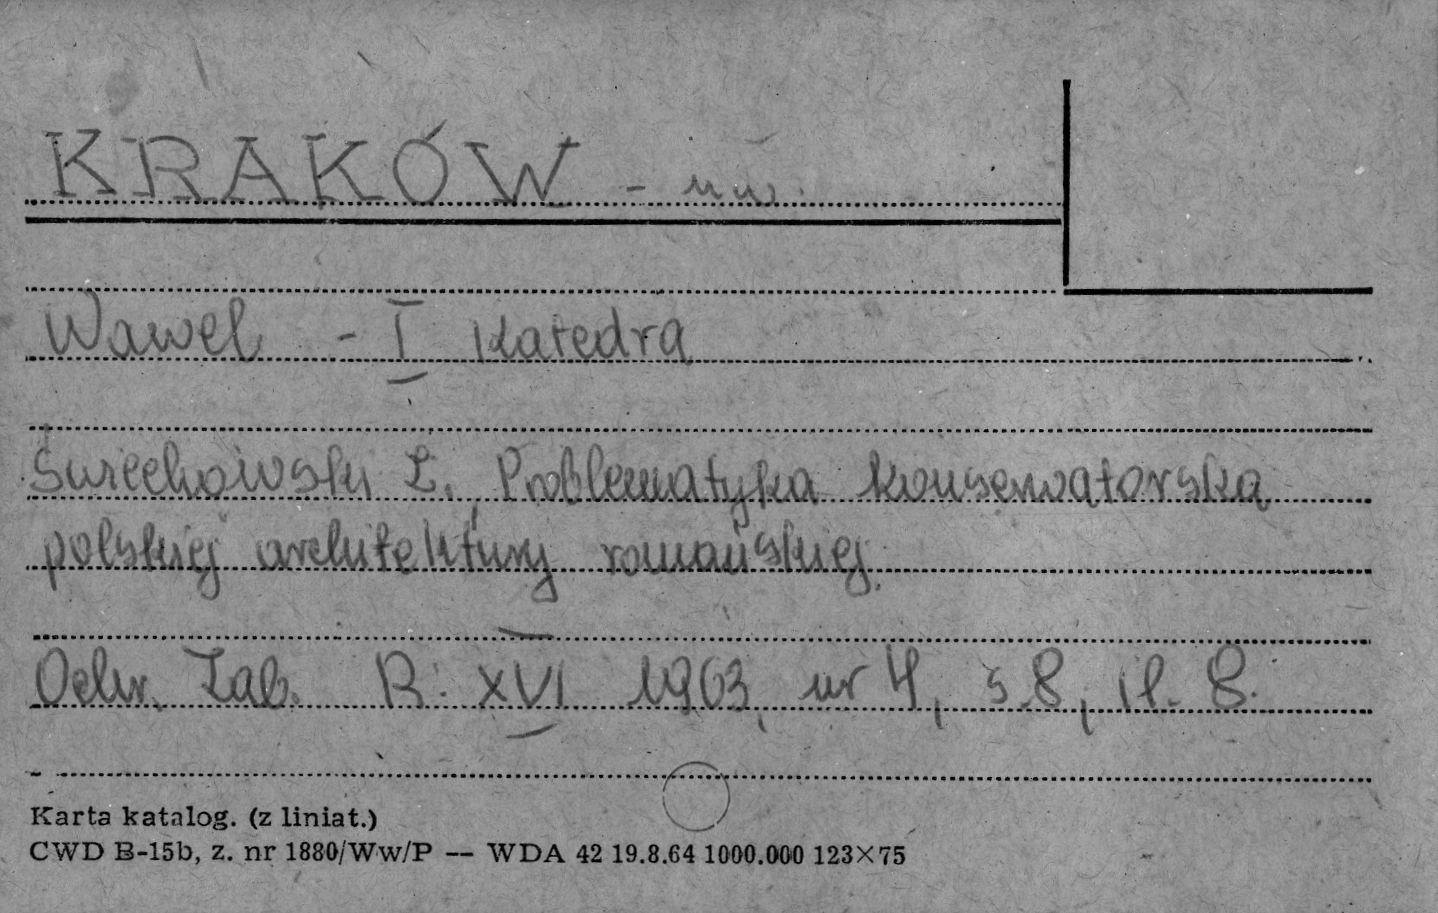 KRAKÓW - m w.
Wawel - I Katedra
Świechowski Z., Problematyka konserwatorska
polskiej architektury romańskiej.
Ochr. Zab. R. XVI 1963, nr 4, s.8, il. 8.
Karta katalog. (z liniat.)
CWD B-15b, z. nr 1880/Ww/P — WDA 42 19.8.64 1000.000 123×75